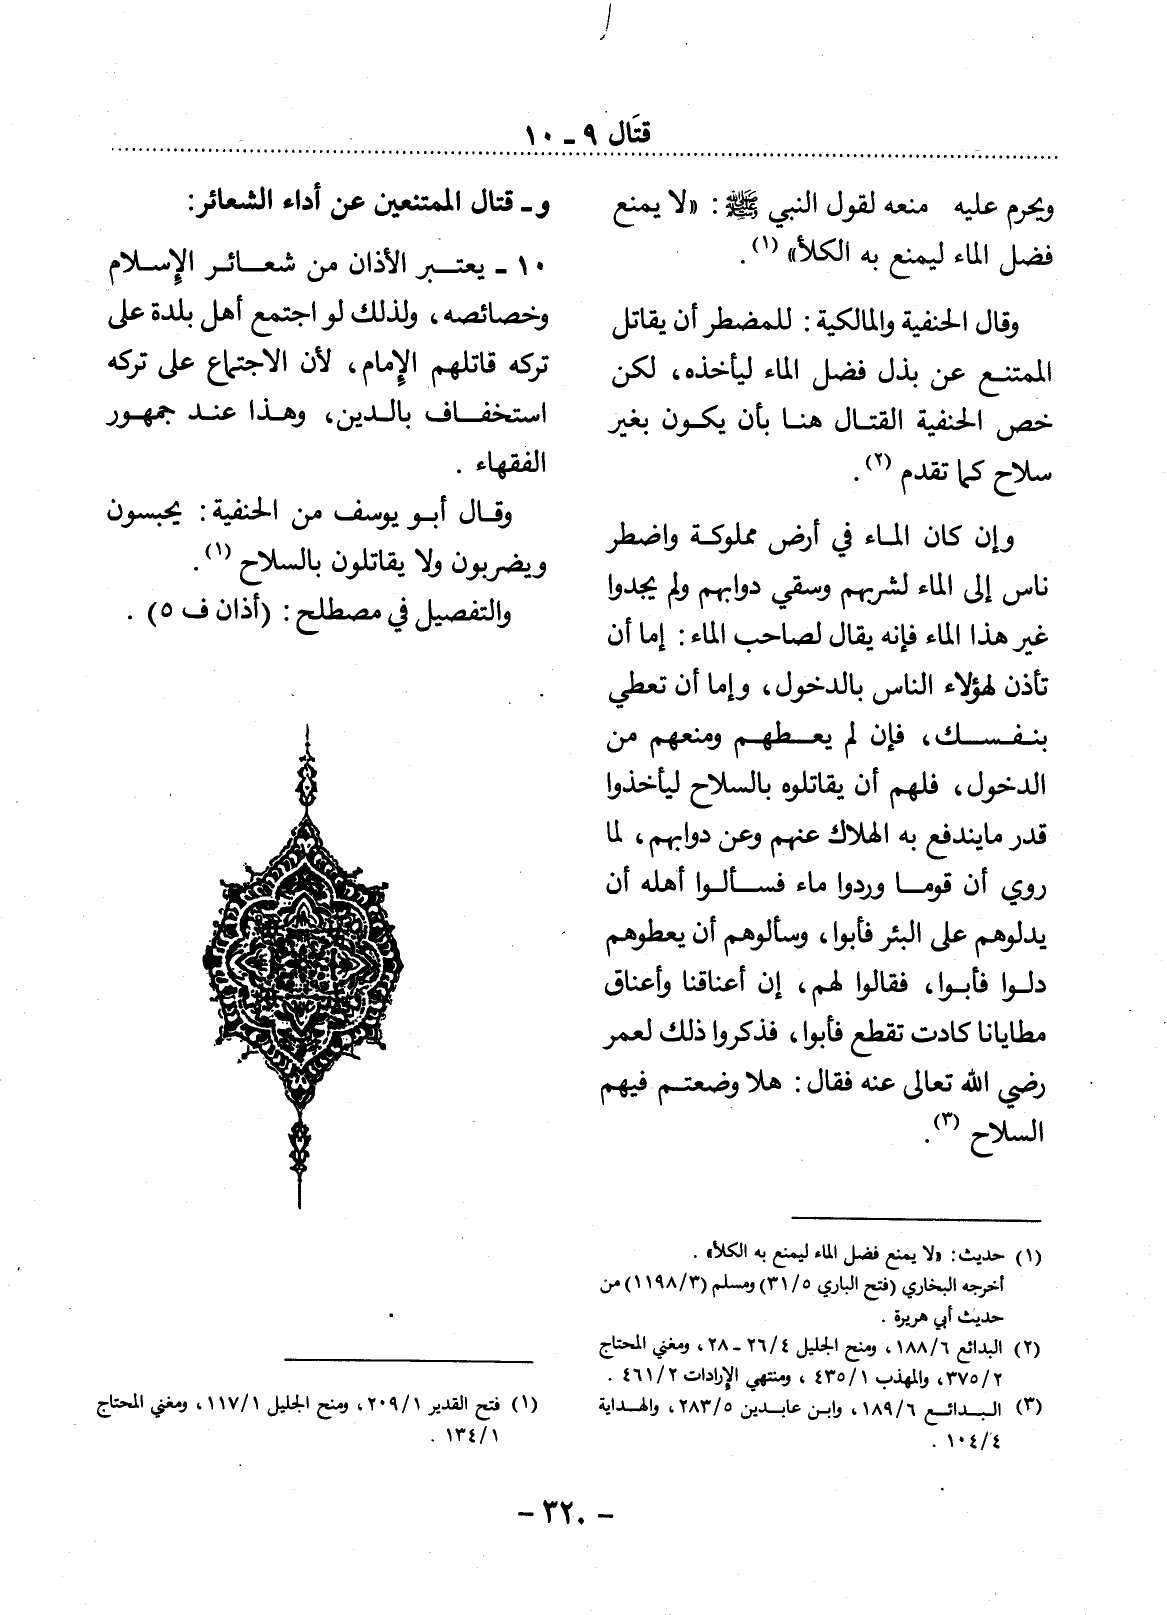 قتَال ٩ ـ ١٠
ويحرم عليه منعه لقول النبي ﷺ : «لا يمنع
فضل الماء ليمنع به الكلأ» (١).
وقال الحنفية والمالكية : للمضطر أن يقاتل
الممتنع عن بذل فضل الماء ليأخذه، لكن
خص الحنفية القتال هنا بأن يكون بغير
سلاح كما تقدم (٢).
وإن كان الماء في أرض مملوكة واضطر
ناس إلى الماء لشربهم وسقي دوابهم ولم يجدوا
غير هذا الماء فإنه يقال لصاحب الماء : إما أن
تأذن لهؤلاء الناس بالدخول، وإما أن تعطي
بنفسك، فإن لم يعطهم ومنعهم من
الدخول، فلهم أن يقاتلوه بالسلاح ليأخذوا
قدر مايندفع به الهلاك عنهم وعن دوابهم، لما
روي أن قوما وردوا ماء فسألوا أهله أن
يدلوهم على البئر فأبوا، وسألوهم أن يعطوهم
دلوا فأبوا، فقالوا لهم، إن أعناقنا وأعناق
مطايانا كادت تقطع فأبوا، فذكروا ذلك لعمر
رضي الله تعالى عنه فقال : هلا وضعتم فيهم
السلاح (٣).
(١) حديث : «لا يمنع فضل الماء ليمنع به الكلأ» .
أخرجه البخاري (فتح الباري ٥/ ٣١) ومسلم (٣/ ١١٩٨) من
حديث أبي هريرة .
(٢) البدائع ٦/ ١٨٨، ومنح الجليل ٤/ ٢٦ ـ ٢٨، ومغني المحتاج
٢/ ٣٧٥، والمهذب ١/ ٤٣٥، ومنتهي الإرادات ٢/ ٤٦١ .
(٣) البدائع ٦/ ١٨٩، وابن عابدين ٥/ ٢٨٣، والهداية
٤/ ١٠٤ .
و ـ قتال الممتنعين عن أداء الشعائر :
١٠ ـ يعتبر الأذان من شعائر الإسلام
وخصائصه، ولذلك لو اجتمع أهل بلدة على
تركه قاتلهم الإمام، لأن الاجتماع على تركه
استخفاف بالدين، وهذا عند جمهور
الفقهاء .
وقال أبو يوسف من الحنفية : يحبسون
ويضربون ولا يقاتلون بالسلاح (١).
والتفصيل في مصطلح : (أذان ف ٥) .
(١) فتح القدير ١/ ٢٠٩، ومنح الجليل ١/ ١١٧، ومغني المحتاج
١/ ١٣٤ .
ـ ٣٢٠ ـ